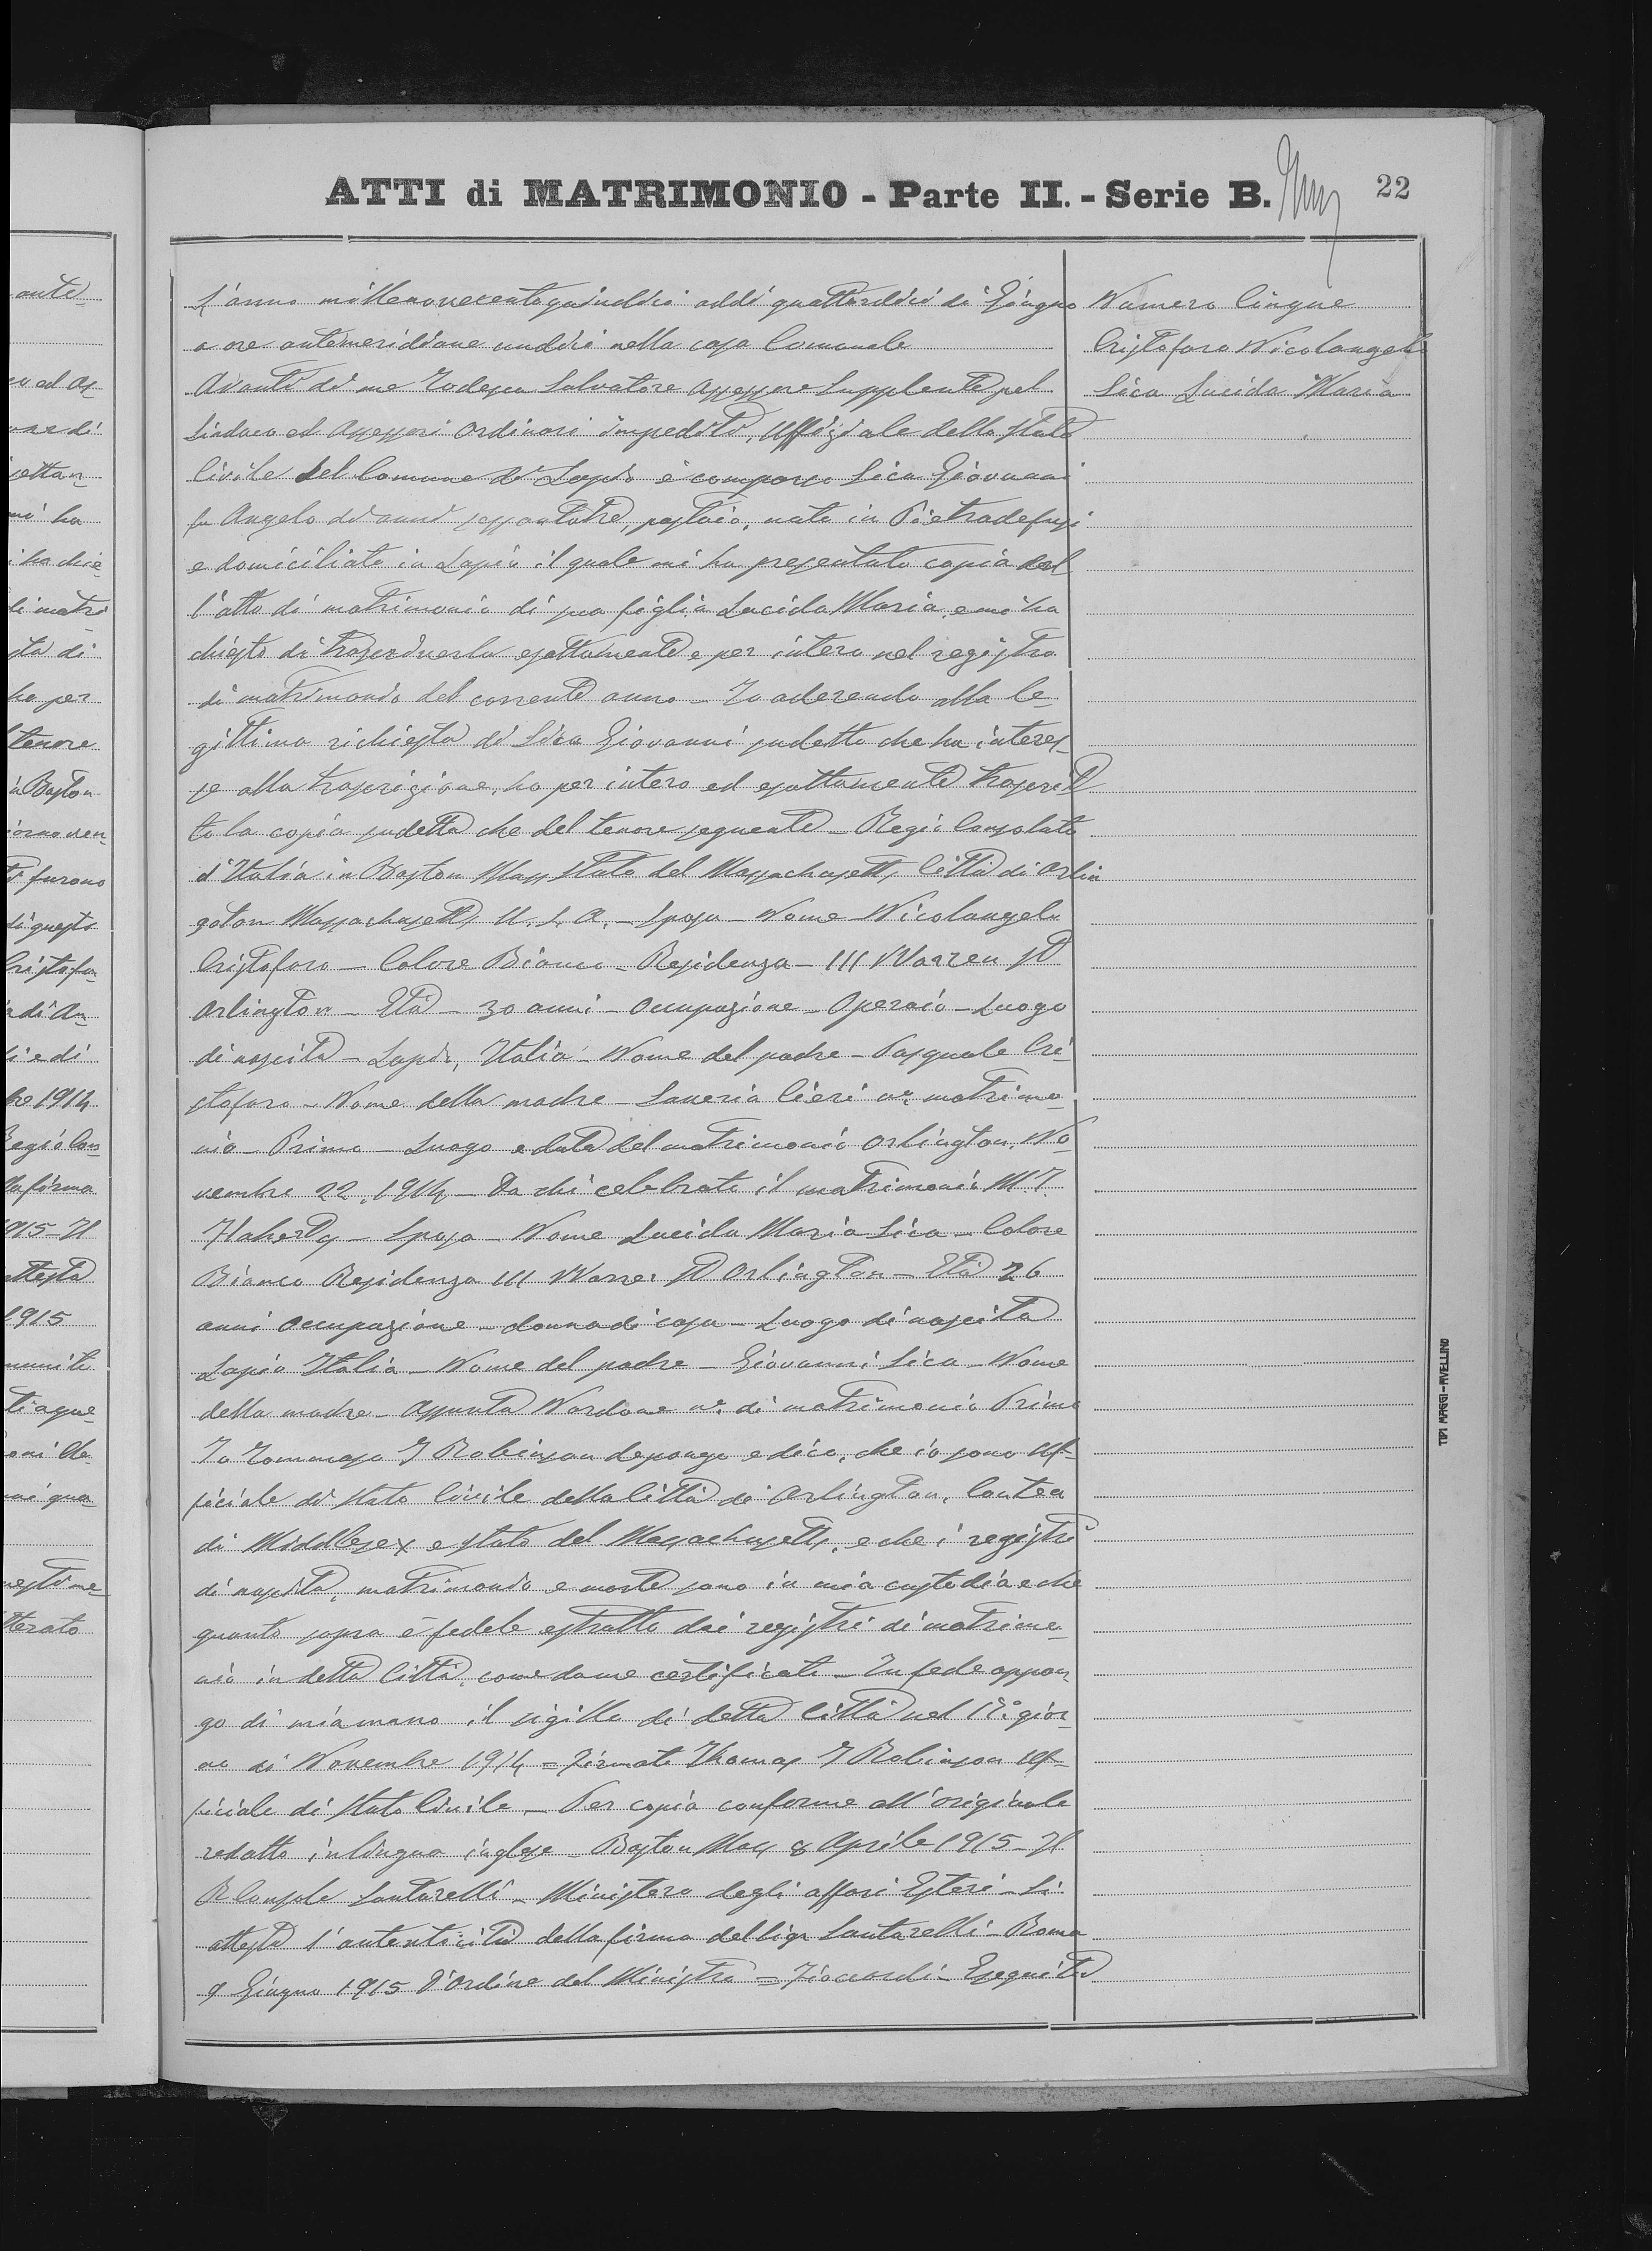 ATTI di MATRIMONIO - Parte II. - Serie B.
22
L'anno millenovecentoquindici addì quattordici di Giugno
a ore antimeridiane undici nella casa Comunale
Avanti di me Salvatore Assessore Supplente pel
Sindaco ed Assessori Ordinari impediti, Uffiziale dello Stato
Civile del Comune di Lapio è comparso Sica Giovanni
fu Angelo di anni sessantatre, nato in Pietradefusi
e domiciliato in Lapio il quale mi ha presentato copia del
l'atto di matrimonio di sua figlia Lucida Maria, e mi ha
chiesto di trascriverla esattamente e per intero nel registro
di matrimonio del corrente anno - Io aderendo alla le-
gittima richiesta di Sica Giovanni sudetto che ha interes-
se alla trascrizione, ho per intero ed esattamente trascrit
to la copia sudetta che del tenore seguente - Regio Consolato
d'Italia in Boston Mass Stato del Massachusetts Città di Arlin
gton Massachusetts U. S. A. - Sposo - Nome - Nicolangelo
Cristofaro - Colore Bianco - Residenza - 111 Warren St
Arlington - Età - 30 anni - Occupazione - Operaio - Luogo
di nascita - Lapio, Italia - Nome del padre - Pasquale Cri-
stofaro - Nome della madre - Saveria Cieri n° matrimo-
nio - Primo - Luogo e data del matrimonio Arlington, No-
vembre 22, 1914 - Da chi celebrato il matrimonio M. J.
Flaherty - Sposa - Nome Lucida Maria Sica - Colore
Bianco Residenza 111 Warren St Arlington - Età 26
anni Occupazione - donna di casa - Luogo di nascita
Lapio Italia - Nome del padre - Giovanni Sica - Nome
della madre - Assunta Nardone n° di matrimonio Primo
Io Tommaso J Robinson depongo e dico, che io sono Uf-
ficiale di Stato Civile della Città di Arlington, Contea
di Middlesex e Stato del Massachusetts, e che i registri
di nascita, matrimonio e morte sono in mia custodia e che
quanto sopra è fedele estratto dai registri di matrimo-
nio in detta Città, come da me certificato - In fede appon-
go di mia mano il sigillo di detta Città nel gior-
no di Novembre 1914 = Firmato Thomas J Robinson Uf-
ficiale di Stato Civile - Per copia conforme all'originale
redatto in lingua inglese - Boston Mass 8 Aprile 1915 - Il
R Console Santarelli - Ministero degli affari Esteri - Si
attesta l'autenticità della firma del Sigr Santarelli - Roma
9 Giugno 1915 d'Ordine del Ministro = - Eseguita
Numero Cinque
Cristofaro Nicolangelo
Sica Lucida Maria
TIPI MAGGI - AVELLINO
ante
co ed As-
one di
settan-
mi ha
i ha chie-
di matri
sta di
ho per
tenore
in Boston
giorno ven-
ti furono
di questo
Cristofa-
a di An-
li e di
bre 1914
Regio Con-
la firma
1915 - Il
attesta
1915
munito
ti a que-
mi qua-
questi me-
tterato